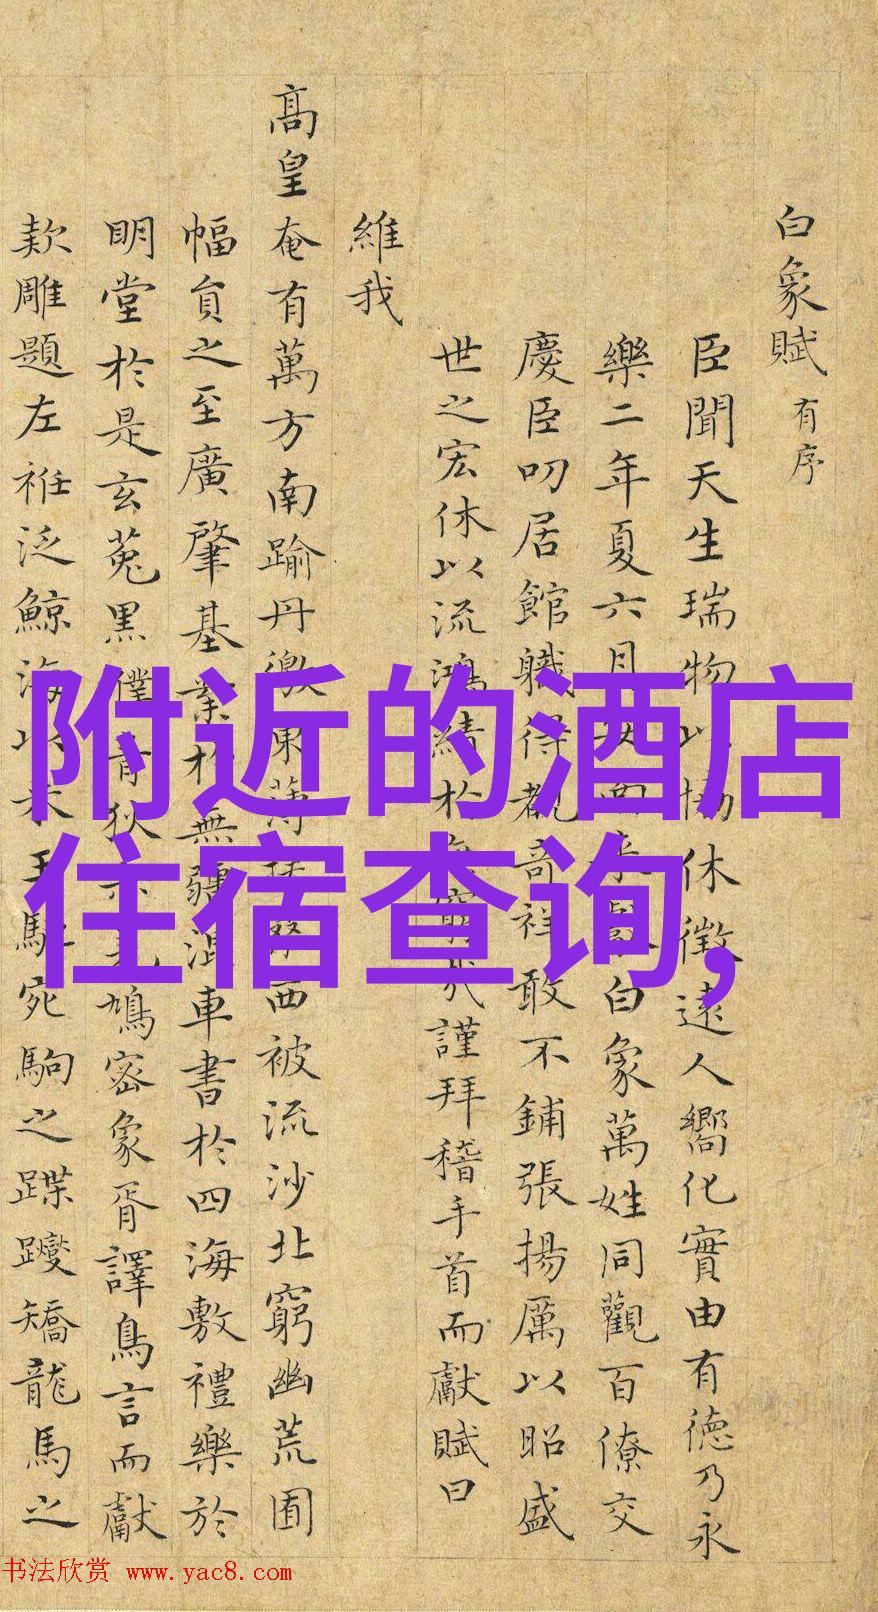 白象賦 有序
臣聞天生瑞物以協休徵遠人嚮化實由有德乃永
樂二年夏六月 白象萬姓同觀百僚交
慶臣叨居館職得覩奇祥敢不鋪張揚厲以昭盛
世之宏休以流鴻績於無窮哉謹拜稽手首而獻賦曰
維我
高皇奄有萬方南踰丹徼東薄 西被流沙北窮幽荒圍
幅員之至廣肇基業於無疆混車書於四海敷禮樂於
明堂於是玄菟黑僕青狄 鳩密象胥譯鳥言而獻
款雕題左衽泛鯨海以 王駒宛駒之蹀躞矯龍馬之
附近的酒店
住宿查询,
书法欣赏 www.yac8.com